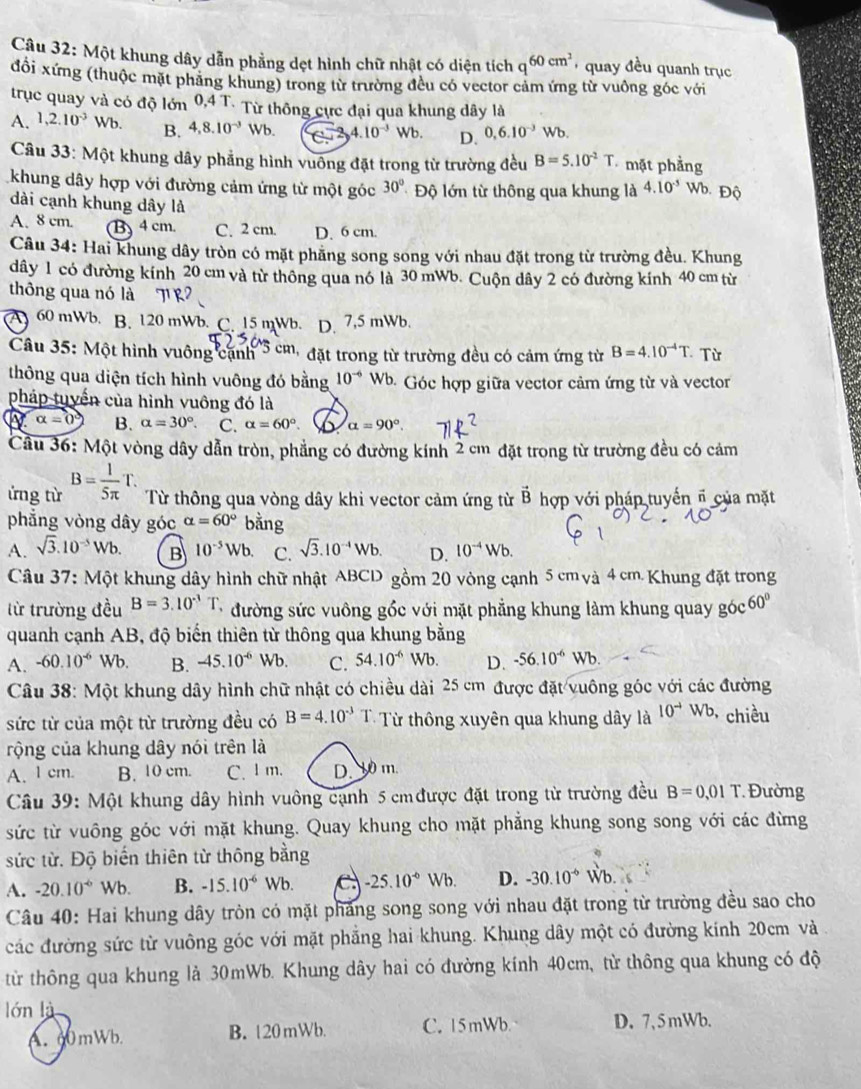 Câu 32: Một khung dây dẫn phẳng dẹt hình chữ nhật có diện tích q 60 cm², quay đều quanh trục
đối xứng (thuộc mặt phẳng khung) trong từ trường đều có vector cảm ứng từ vuông góc với
trục quay và có độ lớn 0,4 T. Từ thông cực đại qua khung dây là
A. 1,2.10⁻³ Wb. B. 4,8.10⁻³ Wb. C. 2,4.10⁻³ Wb. D. 0,6.10⁻³ Wb.
Câu 33: Một khung dây phẳng hình vuông đặt trong từ trường đều B = 5.10⁻² T. mặt phẳng
khung dây hợp với đường cảm ứng từ một góc 30⁰. Độ lớn từ thông qua khung là 4.10⁻⁵ Wb. Độ
dài cạnh khung dây là
A. 8 cm. B. 4 cm. C. 2 cm. D. 6 cm.
Câu 34: Hai khung dây tròn có mặt phẳng song song với nhau đặt trong từ trường đều. Khung
dây 1 có đường kính 20 cm và từ thông qua nó là 30 mWb. Cuộn dây 2 có đường kính 40 cm từ
thông qua nó là πR²
A. 60 mWb. B. 120 mWb. C. 15 mWb. D. 7,5 mWb.
Câu 35: Một hình vuông cạnh 5 cm, đặt trong từ trường đều có cảm ứng từ B = 4.10⁻⁴T. Từ
thông qua diện tích hình vuông đó bằng 10⁻⁶ Wb. Góc hợp giữa vector cảm ứng từ và vector
pháp tuyến của hình vuông đó là
A. α = 0°. B. α = 30°. C. α = 60°. D. α = 90°. πR²
Câu 36: Một vòng dây dẫn tròn, phẳng có đường kính 2 cm đặt trong từ trường đều có cảm
ứng từ B = 1/5π T. Từ thông qua vòng dây khi vector cảm ứng từ B⃗ hợp với pháp tuyến n⃗ của mặt
phẳng vòng dây góc α = 60° bằng
A. √3.10⁻⁵Wb. B 10⁻⁵Wb. C. √3.10⁻⁴Wb. D. 10⁻⁴Wb.
Câu 37: Một khung dây hình chữ nhật ABCD gồm 20 vòng cạnh 5 cm và 4 cm. Khung đặt trong
từ trường đều B = 3.10⁻³ T, đường sức vuông gốc với mặt phẳng khung làm khung quay góc 60⁰
quanh cạnh AB, độ biến thiên từ thông qua khung bằng
A. -60.10⁻⁶ Wb. B. -45.10⁻⁶ Wb. C. 54.10⁻⁶ Wb. D. -56.10⁻⁶ Wb.
Câu 38: Một khung dây hình chữ nhật có chiều dài 25 cm được đặt vuông góc với các đường
sức từ của một từ trường đều có B = 4.10⁻³ T. Từ thông xuyên qua khung dây là 10⁻⁴ Wb, chiều
rộng của khung dây nói trên là
A. 1 cm. B. 10 cm. C. 1 m. D. 10 m.
Câu 39: Một khung dây hình vuông cạnh 5 cm được đặt trong từ trường đều B = 0,01 T. Đường
sức từ vuông góc với mặt khung. Quay khung cho mặt phẳng khung song song với các đừng
sức từ. Độ biến thiên từ thông bằng
A. -20.10⁻⁶ Wb. B. -15.10⁻⁶ Wb. C. -25.10⁻⁶ Wb. D. -30.10⁻⁶ Wb.
Câu 40: Hai khung dây tròn có mặt phẳng song song với nhau đặt trong từ trường đều sao cho
các đường sức từ vuông góc với mặt phẳng hai khung. Khung dây một có đường kính 20cm và
từ thông qua khung là 30mWb. Khung dây hai có đường kính 40cm, từ thông qua khung có độ
lớn là
A. 60mWb. B. 120mWb. C. 15mWb. D. 7,5mWb.